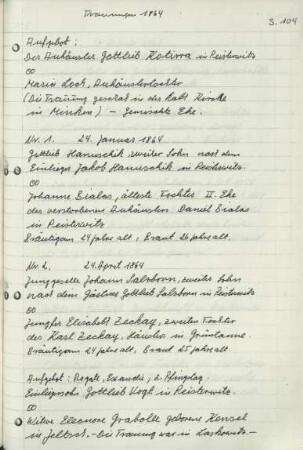 Trauungen 1864
S. 104
Aufgebot:
Der Auhäusler Gottlieb Kotirra in Peisterwitz
∞
Maria Lock, Auhäuslertochter
(Die Trauung geschah in der kath Kirche
in Minken) - Gemischte Ehe.
Nr. 1. 24. Januar 1864
Gottlieb Hanuschik zweiter Sohn nach dem
Einlieger Jakob Hanuschik in Peisterwitz.
∞
Johanne Bialas, älteste Tochter II. Ehe
des verstorbenen Auhäuslers Daniel Bialas
in Peisterwitz
Bräutigam 24 Jahre alt, Braut 26 Jahre alt.
Nr. 2. 24. April 1864
Junggeselle Johann Salzborn, zweiter Sohn
nach dem Gottlieb Salzborn in Peisterwitz
∞
Jungfer Elisabeth Zeckay, zweiten Tochter
des Karl Zeckay, Häusler in Grüntanne.
Bräutigam 24 Jahre alt, Braut 25 Jahre alt.
Aufgebot: Rogate, Exaudi, 2. Pfingsttag
Einliegersohn Gottlieb Vogt in Peisterwitz.
∞
Witwe Eleonore Grabolle geborene Hensel
in Jeltsch. - Die Trauung war in Laskowitz -